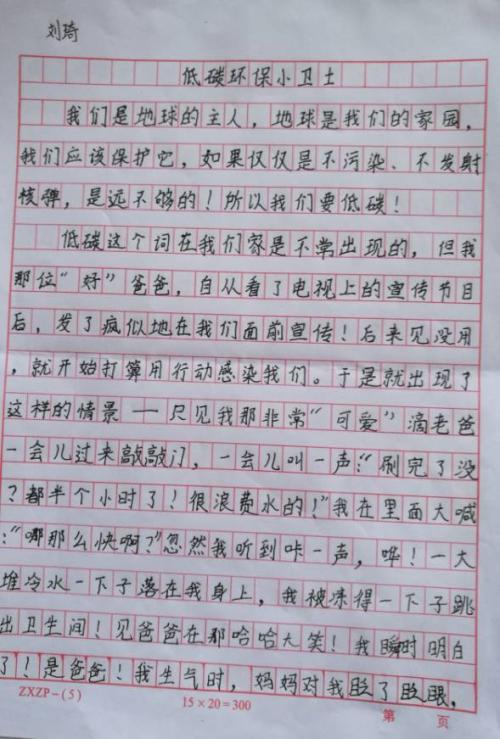 刘琦
低碳环保小卫士
我们是地球的主人，地球是我们的家园，
我们应该保护它，如果仅仅是不污染、不发射
核弹，是远不够的！所以我们要低碳！
低碳这个词在我们家是不常出现的，但我
那位“好”爸爸，自从看了电视上的宣传节目
后，发了疯似地在我们面前宣传！后来见没用
，就开始打算用行动感染我们。于是就出现了
这样的情景——只见我那非常“可爱”滴老爸
一会儿过来敲敲门，一会儿叫一声：“刷完了没
？都半个小时了！很浪费水的！”我在里面大喊
：“哪那么快啊？”忽然我听到咔一声，哗！一大
堆冷水一下子落在我身上，我被冻得一下子跳
出卫生间！见爸爸在那哈哈大笑！我瞬时明白
了！是爸爸！我生气时，妈妈对我眨了眨眼，
ZXZP-(5)
15×20=300
第 页